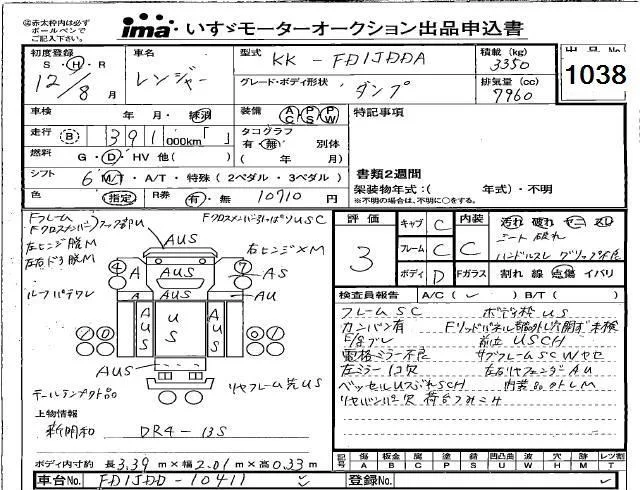 ㊟赤太枠内は必ず
ボールペンで
ご記入下さい。
ima いすゞモーターオークション出品申込書
初度登録
S・H・R
12/8月
車名
レンジャー
型式 KK-FD1JDDA
積載 (kg)
3350
グレード・ボディ形状 ダンプ
排気量 (cc)
7960
出品No.
1038
車検 年・月・抹消
装備 AC PS PW
特記事項
走行 B 391,000km「 」
タコグラフ
有・無 別体
( 年 月)
燃料 G・D・HV 他( )
シフト 6 M/T・A/T・特殊 (2ペダル・3ペダル)
書類2週間
架装物年式:( 年式)・不明
※不明の場合は、不明に○をする。
色 指定 R券 有・無 10710円
Fフレーム
Fクロスメンバー
Fクロスメンバー引っぱりUSC
左ヒンジ脱M
左右ドラ脱M
右ヒンジ×M
ルーフバタワレ
AUS
AUS
AUS
4 A 7 AS
A A AU
AUS US AUS
AUS
テールランプ欠品
リヤフレーム先US
上物情報
新明和 DR4-13S
ボディ内寸約 長3.39m×幅2.01m×高0.33m
車台No. FD1JDD-10411
登録No.
評価
3
キャブ C
フレーム C
ボディ D
内装 C
Fガラス
汚れ 破れ ヤニ スレ
シート破れ
ハンドルスレ グリップ不良
割れ 線 点傷 イバリ
検査員報告 A/C( ✓ ) B/T( )
フレームSC
ボディ枠US
カンバン有
F/Sブレ
前立USCH
電格ミラー不良
サブフレームSCWヤセ
左ミラー1コ欠
左右リヤフェンダーAU
ベッセルUSぶれSCH
リヤバンパー欠
記号
傷 A
凹 B
腐 C
塗 P
錆 S
凹凸曲 U
波 W
穴 H
跡 M
レツ割 T